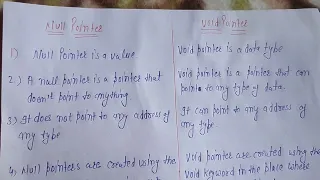 Null Pointer
1) Null Pointer is a value.
2.) A null pointer is a pointer that
doesn't point to anything.
3.) It does not point to any address of
any type
4.) Null pointers are created using the
Void Pointer
Void pointer is a data type
Void pointer is a pointer that can
points to any type of data.
It can point to any address of
any type
Void pointer are created using the
void keyword in the place where